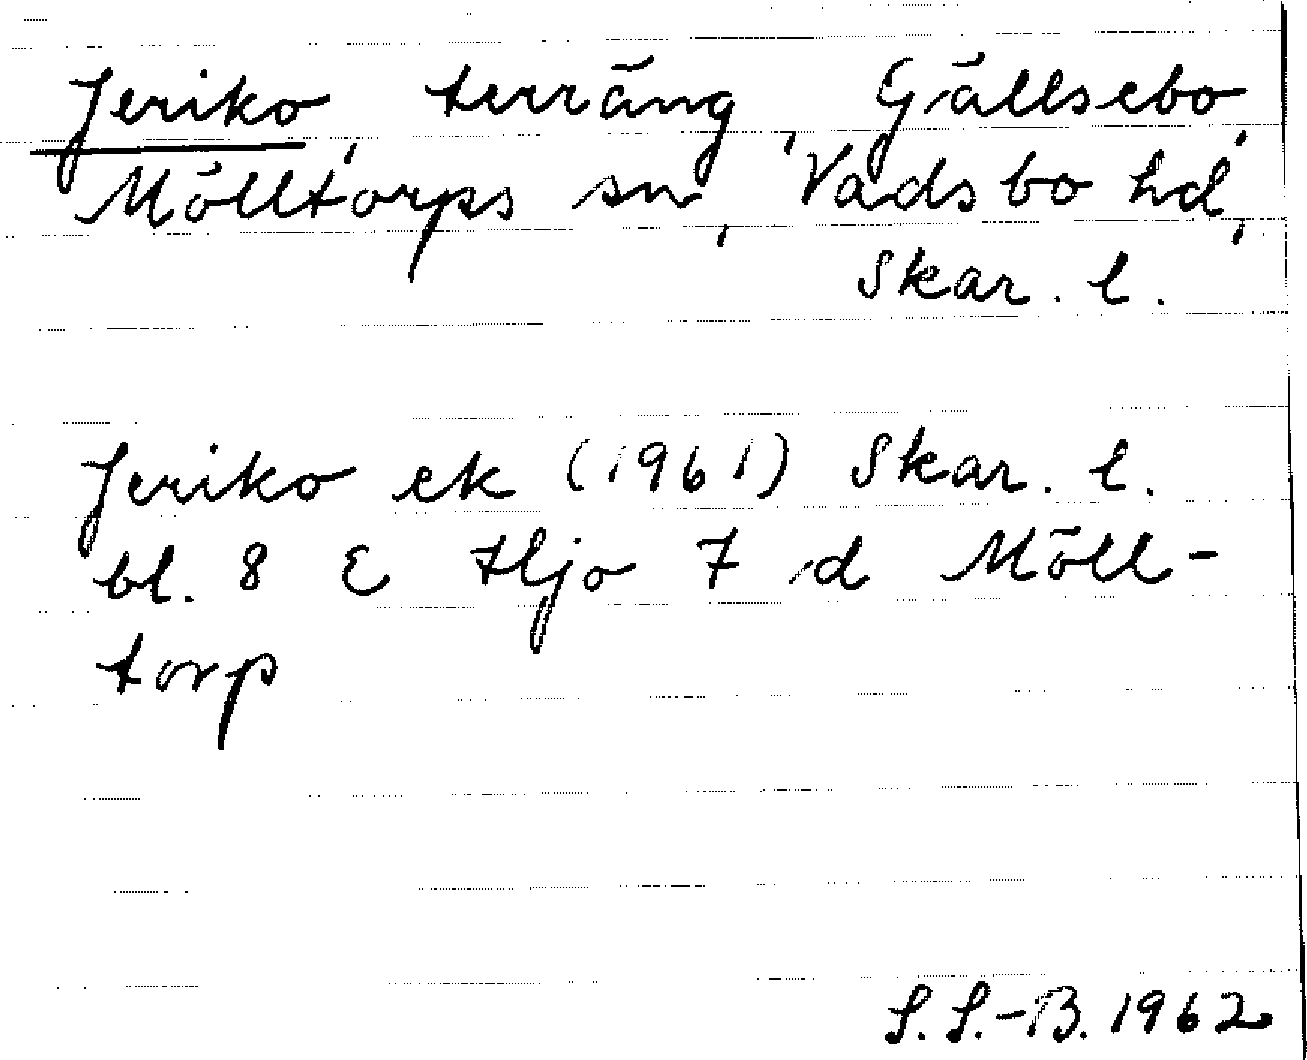 Jeriko, terräng, Gällsebo,
Mölltorps sn, Vadsbo hd,
Skar. l.
Jeriko ek (1961) Skar. l.
bl. 8 E Hjo 7 d Möll-
torp
S. S.-B. 1962